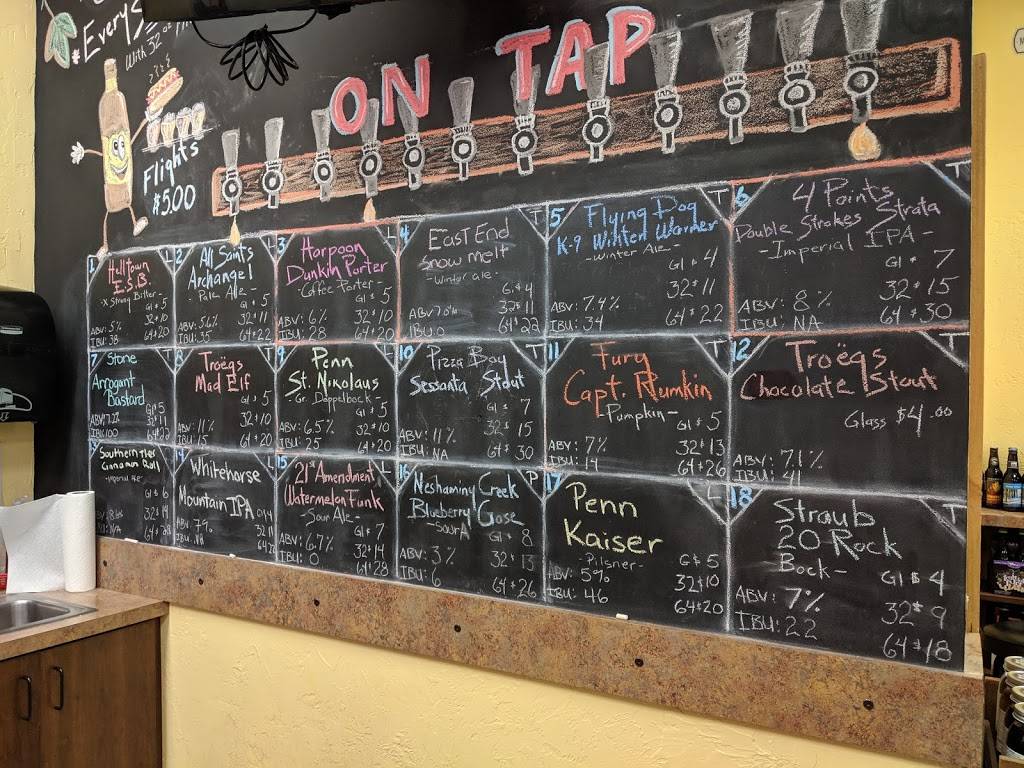 Every
With 32 oz
ON TAP
Flights
$5.00
1
Helltown
E.S.B.
-X Strong Bitter-
Gl $ 5
32 $10
64 $20
ABV: 5%
IBU: 38
2 L
All Saints
Archangel
- Pale Ale -
Gl $ 5
32 $ 11
64 $ 22
ABV: 5.6%
IBU: 35
3 L
Harpoon
Dunkin Porter
- Coffee Porter -
Gl $ 5
ABV: 6% 32 $ 10
IBU: 28 64 $ 20
4 T
East End
Snow melt
- Winter ale -
G $ 4
ABV 7.0% 32 $ 11
IBU: 0 64 $ 22
5 T
Flying Dog
K-9 Winter Warmer
- Winter Ale -
Gl $ 4
32 $ 11
ABV: 7.4%
IBU: 34 64 $ 22
6 T
4 Points
Double Strokes Strata
- Imperial IPA -
Gl $ 7
32 $ 15
ABV: 8%
IBU: NA 64 $ 30
7
Stone
Arrogant
Bastard
Gl $ 5
ABV: 7.2%
IBU: 100
8
Troëgs
Mad Elf
$ 5
ABV: 11% 32 $ 10
IBU: 15 64 $ 20
9
Penn
St. Nikolaus
- Gr. Doppelbock -
Gl $ 5
ABV: 6.5% 32 $ 10
IBU: 25 64 $ 20
10 T
Pizza Boy
Sessanta Stout
Gl $ 7
32 $ 15
ABV: 11%
IBU: NA 64 $ 30
11 T
Fury
Capt. Plumkin
- Pumpkin -
Gl $ 5
ABV: 7% 32 $ 13
IBU: 14 64 $ 26
12 T
Troëgs
Chocolate Stout
Glass $4.00
ABV: 7.1%
IBU: 41
Southern Tier
Cinnamon Roll
- Imperial Ale -
Gl $ 6
32 $ 14
64 $ 28
L
Whitehorse
Mountain IPA
Gl $ 4
32 $ 11
15 L
21st Amendment
Watermelon Funk
- Sour Ale -
Gl $ 7
ABV: 6.7% 32 $ 14
IBU: 0 64 $ 28
16 P
Neshaminy Creek
Blueberry Gose
- Sour A
Gl $ 8
ABV: 3% 32 $ 13
IBU: 6 64 $ 26
17 L
Penn
Kaiser
- Pilsner -
G $ 5
ABV: 5% 32 $ 10
IBU: 46 64 $ 20
18
Straub
20 Rock
Bock - Gl $ 4
ABV: 7% 32 $ 9
IBU: 22 64 $ 18